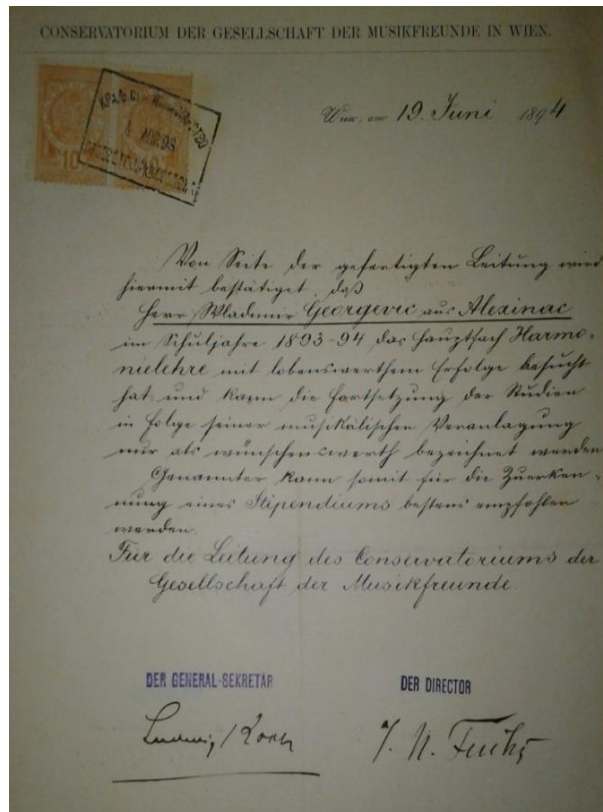 CONSERVATORIUM DER GESELLSCHAFT DER MUSIKFREUNDE IN WIEN.
Wien, am 19. Juni 1894
10 10
Von Seite der gefertigten Leitung wird
hiermit bestätiget, daß
Herr Wladimir Georgevic aus Alexinac
im Schuljahre 1893-94 das Hauptfach Harmo-
nielehre mit lobenswerthem Erfolge besucht
hat und kann die Fortsetzung der Studien
in Folge seiner musikalischen Veranlagung
nur als wünschenswerth bezeichnet werden
Genannter kann somit für die Zuerken-
nung eines Stipendiums bestens empfohlen
werden.
Für die Leitung des Conservatoriums der
Gesellschaft der Musikfreunde.
DER GENERAL-SEKRETÄR
DER DIRECTOR
Ludwig Koch
J. N. Fuchs